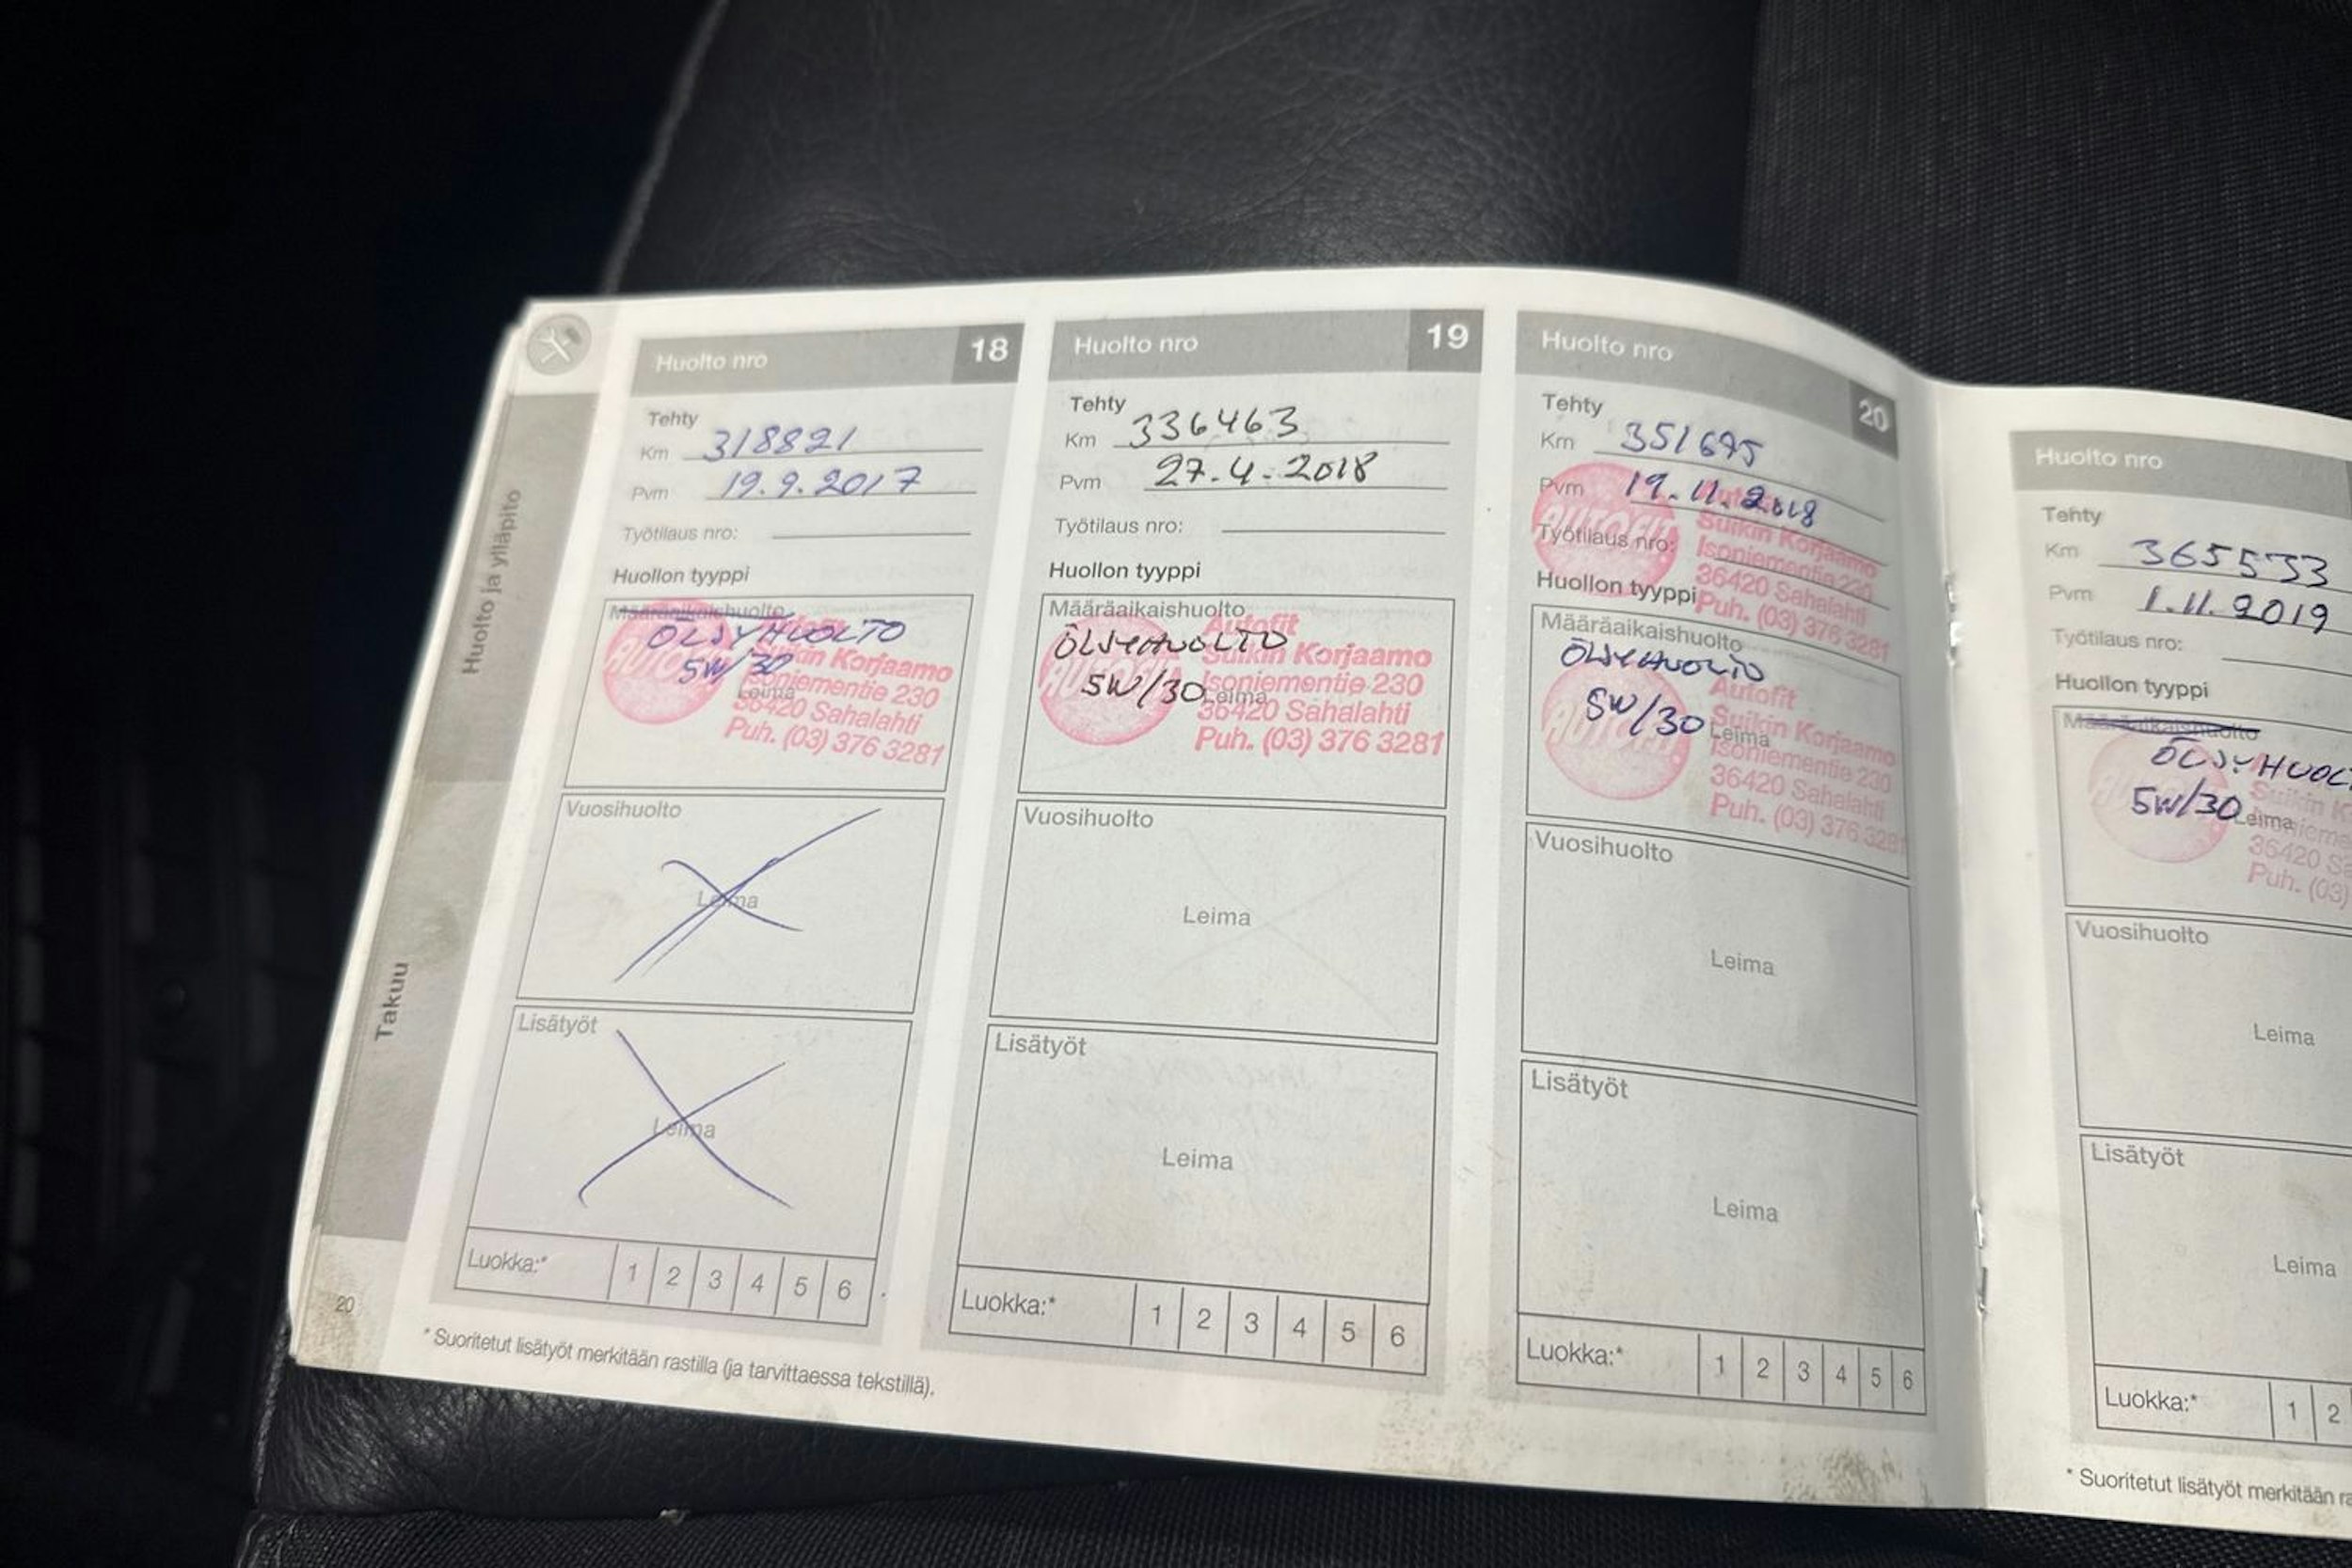 Huolto ja ylläpito
Takuu
20
Huolto nro 18
Tehty
Km 318821
Pvm 19.9.2017
Työtilaus nro:
Huollon tyyppi
Määräaikaishuolto
ÖLJYHUOLTO
5W/30
Leima
Suikin Korjaamo
Isoniementie 230
36420 Sahalahti
Puh. (03) 376 3281
Vuosihuolto
Leima
Lisätyöt
Leima
Luokka:* 1 2 3 4 5 6
* Suoritetut lisätyöt merkitään rastilla (ja tarvittaessa tekstillä).
Huolto nro 19
Tehty
Km 336463
Pvm 27.4.2018
Työtilaus nro:
Huollon tyyppi
Määräaikaishuolto
ÖLJYHUOLTO
5W/30
Leima
AUTOFIT
Autofit
Suikin Korjaamo
Isoniementie 230
36420 Sahalahti
Puh. (03) 376 3281
Vuosihuolto
Leima
Lisätyöt
Leima
Luokka:* 1 2 3 4 5 6
Huolto nro 20
Tehty
Km 351695
Pvm 19.11.2018
Työtilaus nro:
AUTOFIT
Autofit
Suikin Korjaamo
Isoniementie 230
36420 Sahalahti
Puh. (03) 376 3281
Huollon tyyppi
Määräaikaishuolto
ÖLJYHUOLTO
5W/30
Leima
AUTOFIT
Autofit
Suikin Korjaamo
Isoniementie 230
36420 Sahalahti
Puh. (03) 376 328
Vuosihuolto
Leima
Lisätyöt
Leima
Luokka:* 1 2 3 4 5 6
Huolto nro
Tehty
Km 365533
Pvm 1.11.2019
Työtilaus nro:
Huollon tyyppi
Määräaikaishuolto
ÖLJYHUOL
5W/30
Leima
Suikin K
36420 Sa
Puh. (03)
Vuosihuolto
Leima
Lisätyöt
Leima
Luokka:* 1 2
* Suoritetut lisätyöt merkitään ra